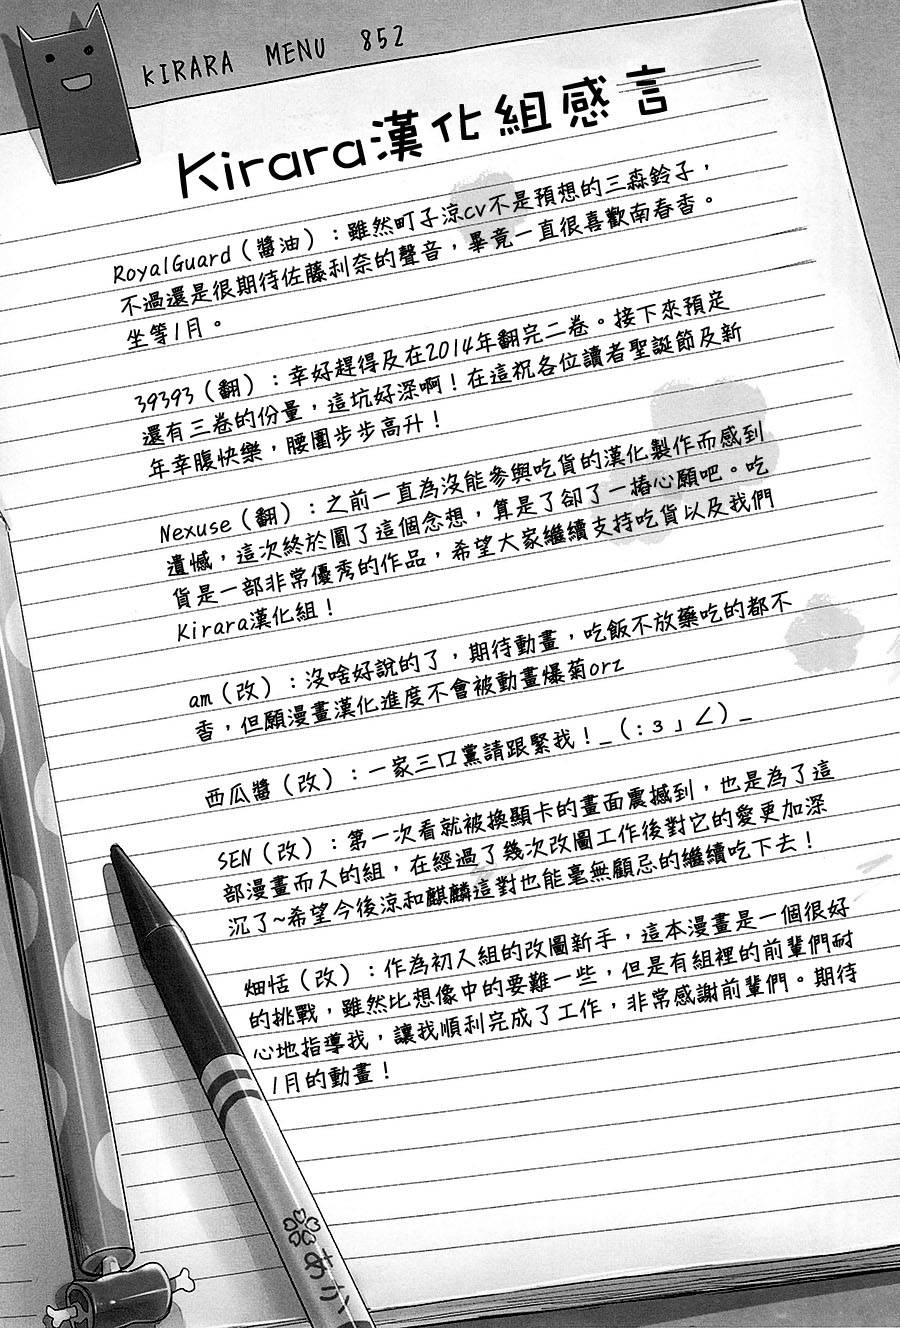 KIRARA MENU 852
Kirara漢化組感言
RoyalGuard（醬油）：雖然町子涼cv不是預想的三森鈴子，
不過還是很期待佐藤利奈的聲音，畢竟一直很喜歡南春香。
坐等1月。
39393（翻）：幸好趕得及在2014年翻完二卷。接下來預定
還有三卷的份量，這坑好深啊！在這祝各位讀者聖誕節及新
年幸腹快樂，腰圍步步高升！
Nexuse（翻）：之前一直為沒能參與吃貨的漢化製作而感到
遺憾，這次終於圓了這個念想，算是了卻了一樁心願吧。吃
貨是一部非常優秀的作品，希望大家繼續支持吃貨以及我們
Kirara漢化組！
am（改）：沒啥好說的了，期待動畫，吃飯不放藥吃的都不
香，但願漫畫漢化進度不會被動畫爆菊orz
西瓜醬（改）：一家三口黨請跟緊我！_（:3」∠）_
SEN（改）：第一次看就被換顯卡的畫面震撼到，也是為了這
部漫畫而入的組，在經過了幾次改圖工作後對它的愛更加深
沉了~希望今後涼和麒麟這對也能毫無顧忌的繼續吃下去！
畑恬（改）：作為初入組的改圖新手，這本漫畫是一個很好
的挑戰，雖然比想像中的要難一些，但是有組裡的前輩們耐
心地指導我，讓我順利完成了工作，非常感謝前輩們。期待
1月的動畫！